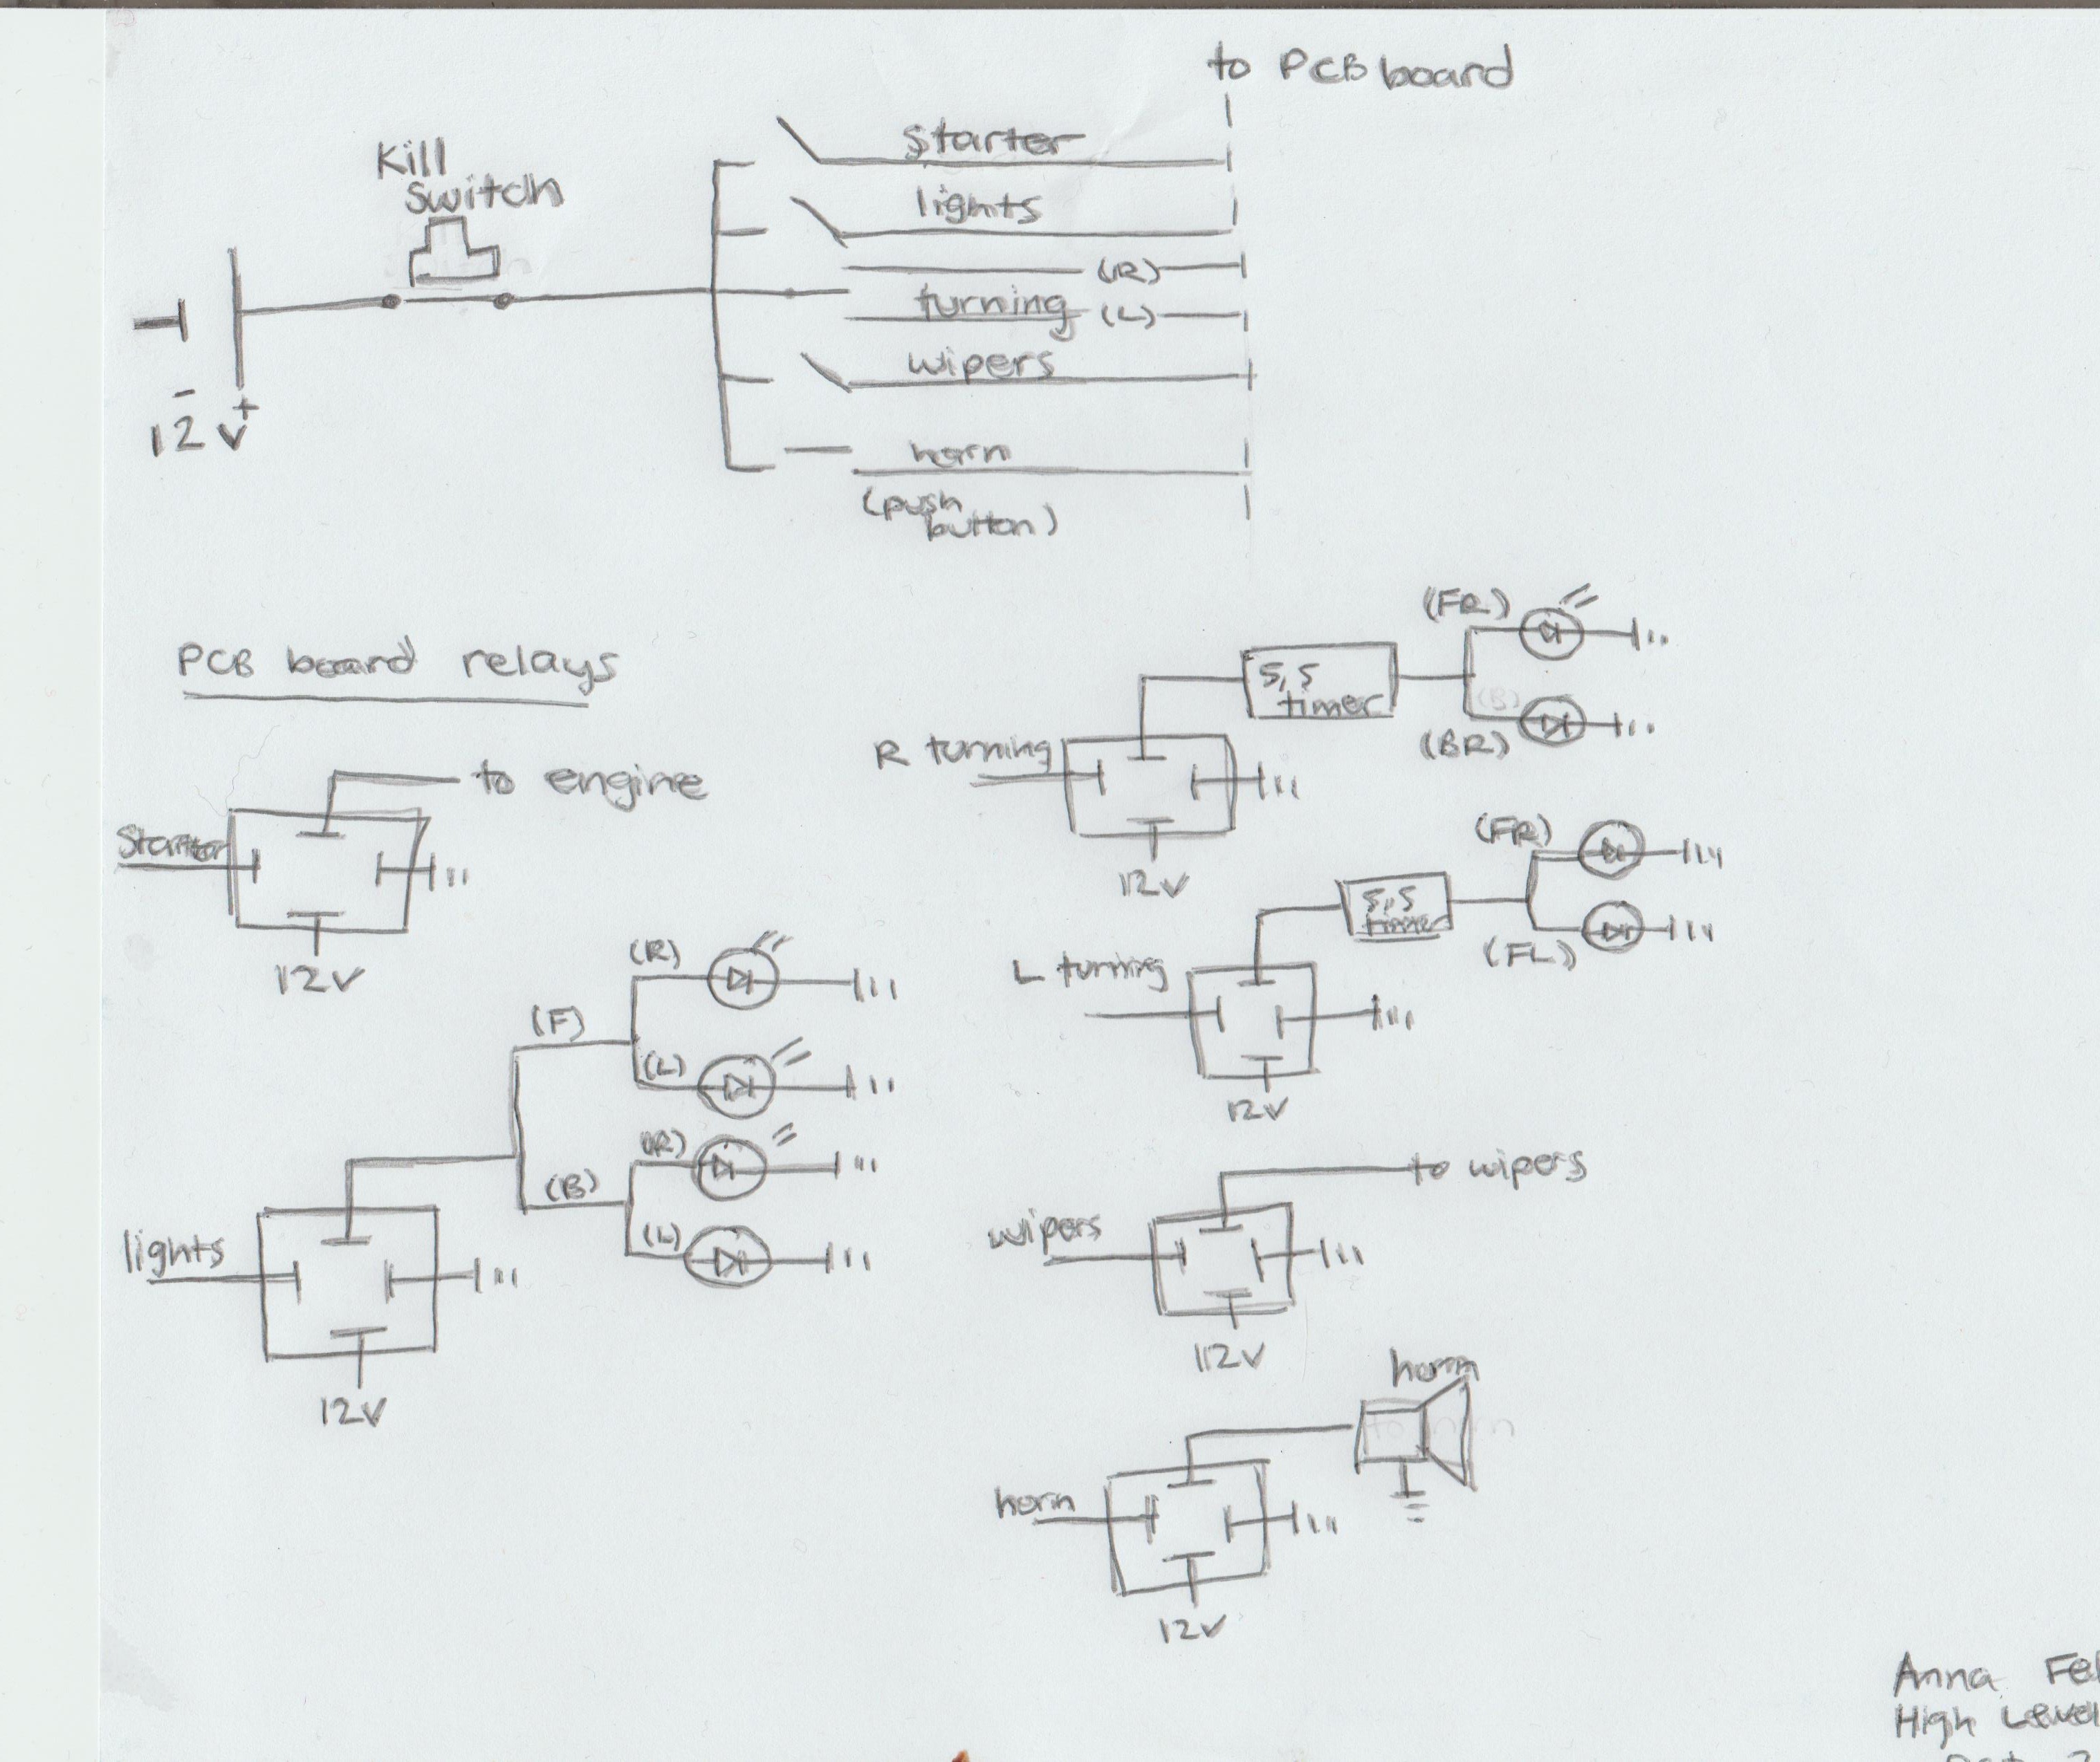 to PCB board
Kill
Switch
starter
lights
(R)
turning (L)
wipers
horn
(push
button)
- +
12V
PCB board relays
Starter
to engine
12V
lights
(F)
(R)
(L)
(B)
(R)
(L)
12V
R turning
5,5
timer
(FR)
(B)
(BR)
12V
L turning
5,5
timer
(FR)
(FL)
12V
wipers
to wipers
12V
horn
horn
to horn
12V
Anna Fel
High Level